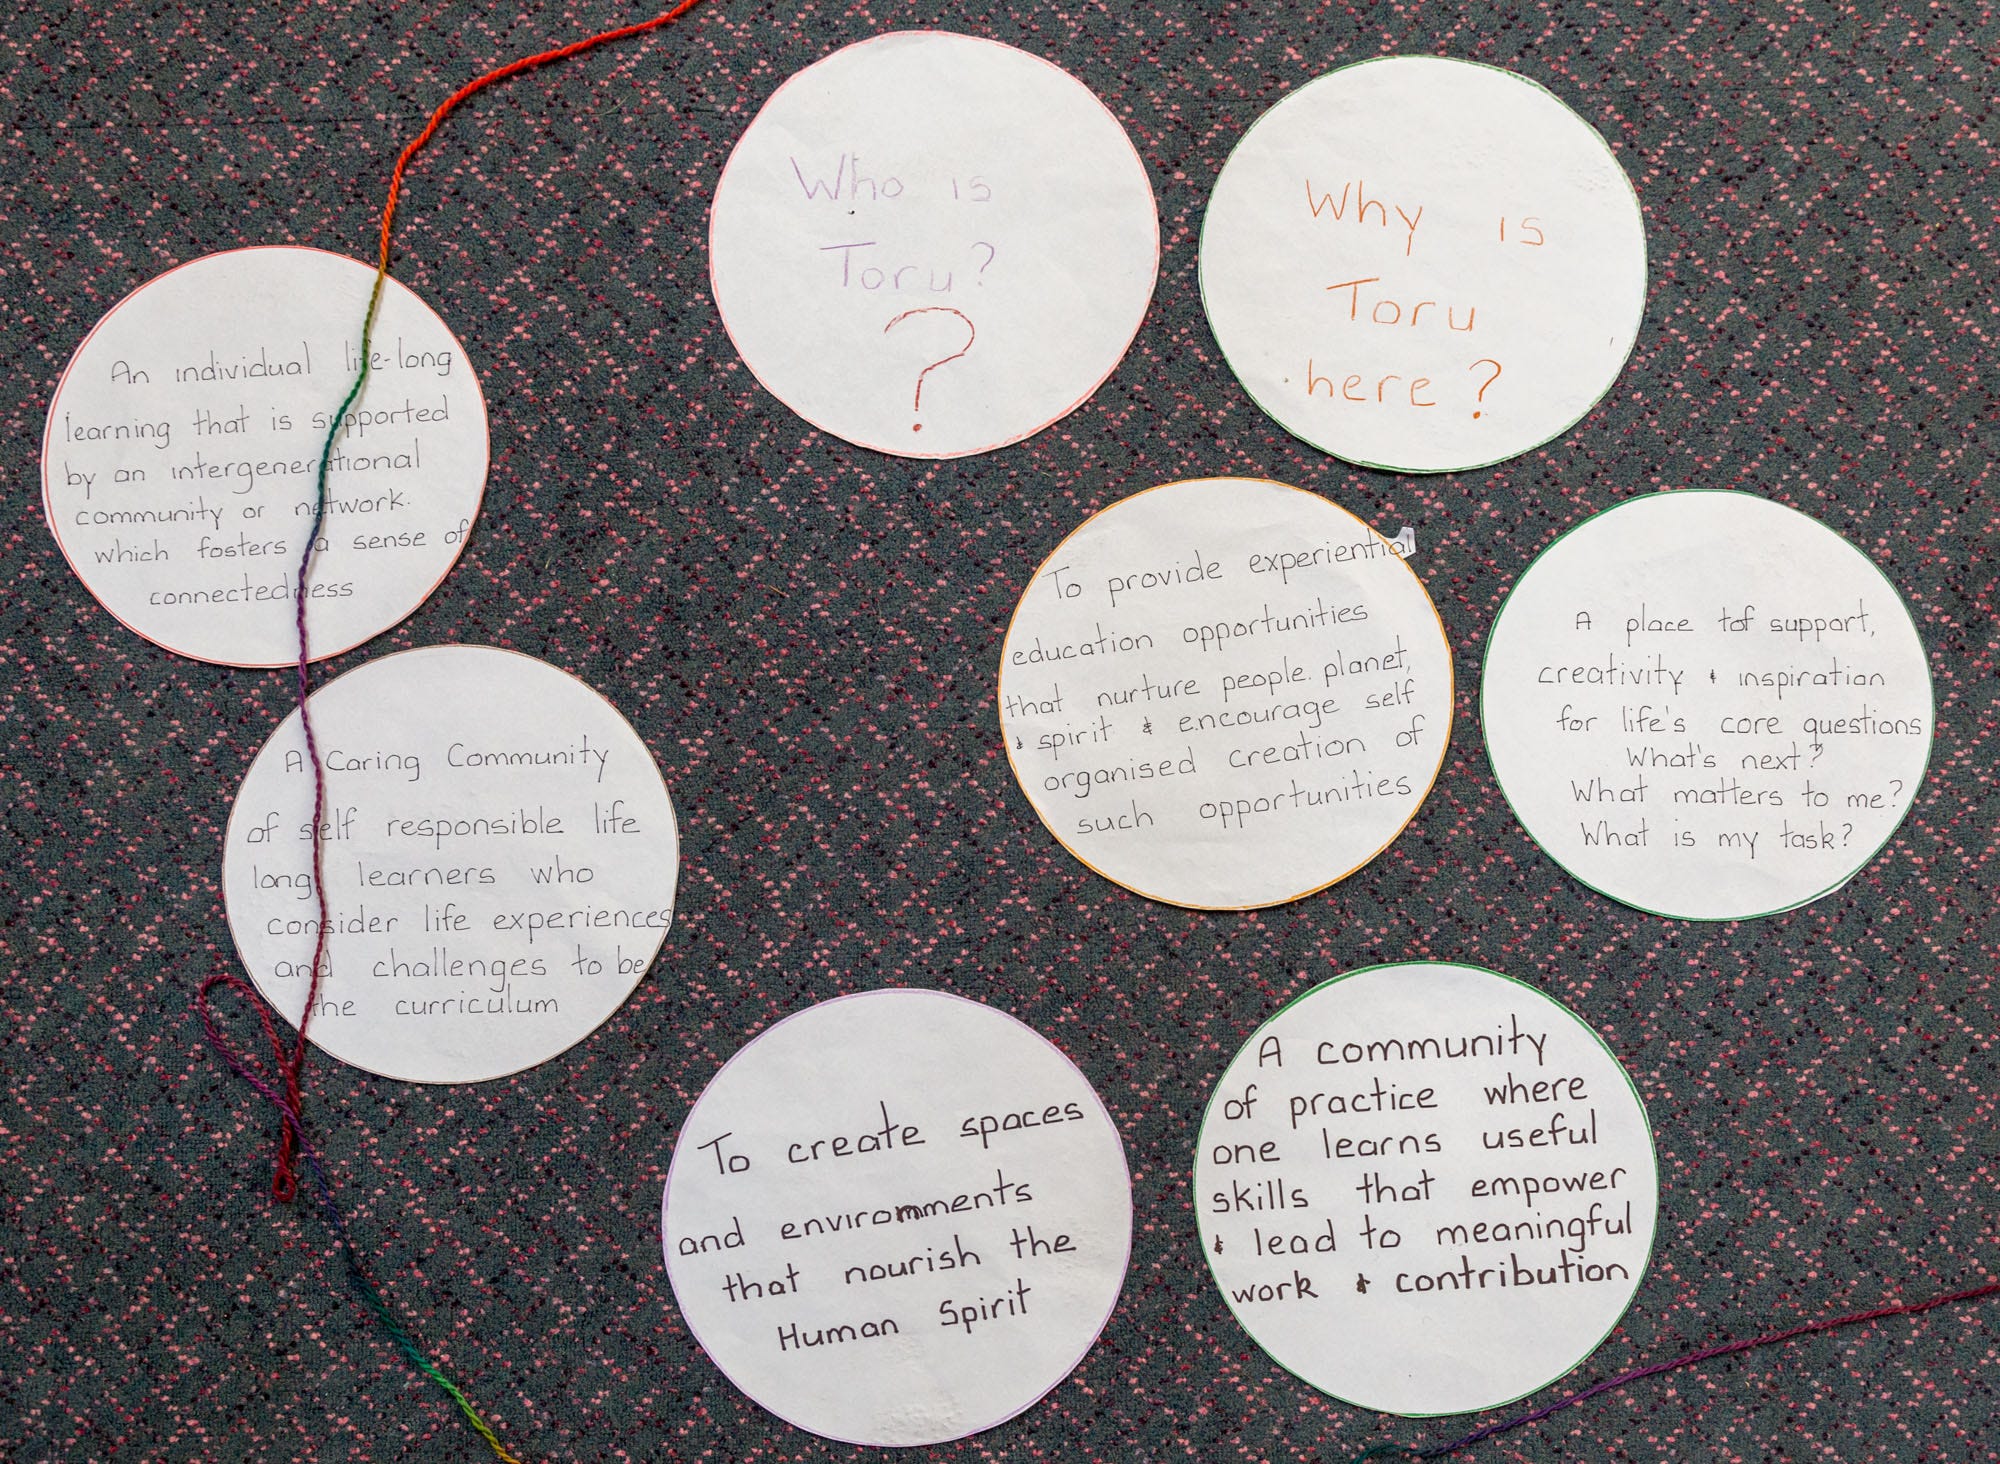 Who is
Toru?
?
Why is
Toru
here?
An individual life-long
learning that is supported
by an intergenerational
community or network.
which fosters a sense of
connectedness
To provide experiential
education opportunities
that nurture people. planet,
& spirit & encourage self
organised creation of
such opportunities
A place tof support,
creativity & inspiration
for life's core questions
What's next?
What matters to me?
What is my task?
A Caring Community
of self responsible life
long learners who
consider life experiences
and challenges to be
the curriculum
To create spaces
and environments
that nourish the
Human Spirit
A community
of practice where
one learns useful
skills that empower
& lead to meaningful
work & contribution